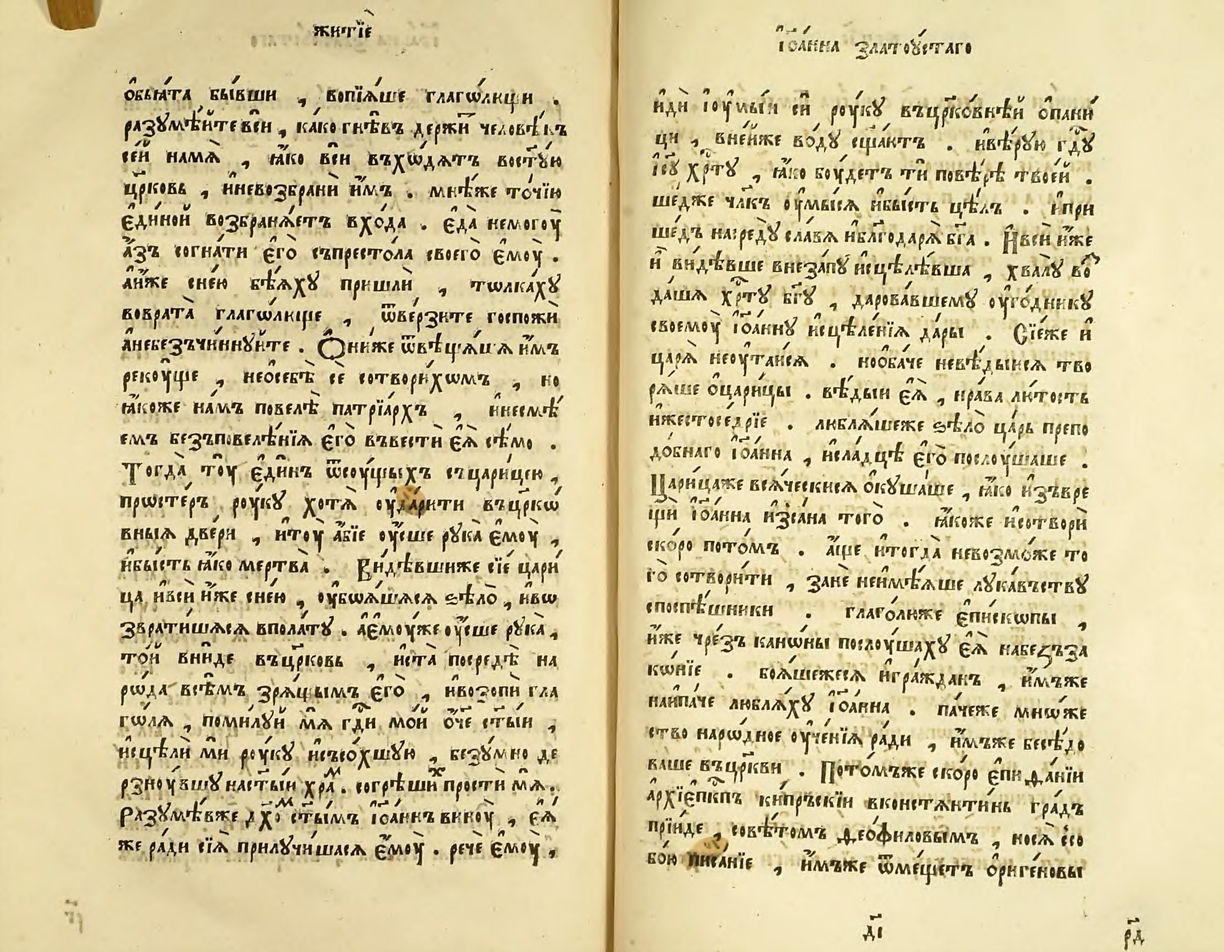 житїѐ
ѻ҆бьѧ́та бы́вши , вопїѧ́ше глаго́лющи .
разꙋмѣ́йте всѝ , ка́ко гнѣ́въ держи́тъ человѣ́къ
се́й намѧ̀ , ꙗ҆́ко всѝ въхѡ́дѧтъ востꙋ́ю
цр҃ковь , и҆невозбранѝ и҆́мъ . мнѣ́же то́чїю
є҆ди́ной возбранѧ́етъ вхо́да . є҆да̀ немогоу̀
а҆́зъ согна́ти є҆го̀ съпресто́ла своего̀ є҆моу̀ .
а҆и҆́же сне́ю бѣ́ѧхꙋ пришлѝ , тѡлка́хꙋ
вовра́та глаго́люще , ѿве́рзите госпожѝ
а҆небезъчи́ннꙋйте . Ѻ҆ни́же ѿвѣща́шѧ и҆́мъ
рекоу́ще , неѡ҆себѣ̀ сѐ сотвори́хѡмъ , но
ꙗ҆́коже на́мъ повелѣ̀ патрїа́рхъ , и҆несмѣ́
емъ безъповелѣ́нїѧ є҆го̀ въвестѝ є҆ѧ̀ сѣ́мо .
Тогда̀ тоу̀ є҆ди́нъ ѿсоу́щыхъ съцари́цею ,
просте́ръ роу́кꙋ хотѧ̀ оу҆да́рити въцр҃кѡ́
вныѧ две́ри , и҆тоу̀ а҆́бїе оу҆́сше рꙋка̀ є҆моу̀ ,
и҆бы́сть ꙗ҆́ко мертва̀ . Ви́дѣвшиже сїѐ цари́
ца, и҆всѝ и҆́же сне́ю , оу҆боѧ́шѧсѧ ѕѣло̀ , и҆во
звратишѧсѧ впола́тꙋ . а҆є҆моу́же оу҆́сше рꙋка̀ ,
то́й вни́де въцр҃ковь , и҆ста̀ посредѣ̀ на
рѡ́да всѣ́мъ зрѧ́щымъ є҆го̀ , и҆возопѝ гла
го́лѧ , поми́лꙋй мѧ̀ гд҃и мо́й ѻ҆́че ст҃ы́й ,
и҆сцѣлѝ мѝ роу́кꙋ и҆сьсо́хшꙋю , безꙋ́мно де
рзноу́вшꙋ наст҃ы́й хра́м . согрѣши́х простѝ мѧ̀ .
Разꙋмѣ́вже дх҃ом ст҃ы́мъ і҆ѡа́ннъ виноу̀ , є҆ѧ́
же ра́ди сїѧ̀ прилꙋчи́шасѧ є҆моу̀ . речѐ є҆моу̀ ,
і҆ѡа́нна златоу́стаго
и҆дѝ і҆оу҆мы́й сѝ роу́кꙋ въцр҃ко́внѣй ѻ҆пани́
ци , вне́йже во́дꙋ сщ҃а́ютъ . и҆вѣ́рꙋю гд҃ꙋ
і҆с҃ꙋ хр҃тꙋ̀ , ꙗ҆́ко боу́детъ тѝ повѣ́рѣ твое́й .
ше́дже чл҃къ оу҆мы́сѧ и҆бы́сть цѣ́лъ . і҆при
ше́дъ насредꙋ̀ сла́вѧ и҆благодарѧ̀ бг҃а . И҆всѝ и҆́же
и҆̀ ви́дѣвше внеза́пꙋ и҆сцѣлѣ́вша , хвалꙋ̀ во́з
да́шѧ хр҃тꙋ̀ бг҃ꙋ , дарова́вшемꙋ оу҆го́дникꙋ
своемоу̀ і҆ѡа́ннꙋ и҆сцѣле́нїѧ да́ры . Сїе́же и҆̀
царѧ̀ неоу҆таи́сѧ . ноѻ҆ба́че невѣ́дыйсѧ тво
рѧ́ше ѻ҆цари́цы . вѣ́дый є҆ѧ̀ , нра́ва лю́тость
и҆жестосе́рдїе . люблѧ́шеже ѕѣло̀ ца́рь препо
до́бнаго і҆ѡа́нна , и҆сла́дцѣ є҆го̀ послоу́шаше .
Цари́цаже всѧ́ческисѧ ѻ҆кꙋша́ше , ꙗ҆́ко и҆зъвре
щѝ і҆ѡа́нна и҆з̾са́на того̀ . ꙗ҆́коже и҆сотворѝ
ско́ро пото́мъ . а҆́ще и҆тогда̀ невозмо́же то
го̀ сотвори́ти , занѐ неимѣ́ѧше лꙋка́въствꙋ
споспѣ́шники . глаго́люже є҆пи́скопы ,
и҆́же чре́зъ кано́ны послоу́шахꙋ є҆ѧ̀ набезъза
ко́нїе . боѧ́шежесѧ и҆гра́жданъ , и҆́мъже
наипа́че люблѧ́хꙋ і҆ѡа́нна . па́чеже мно́же
ство наро́дное оу҆че́нїѧ ра́ди , и҆́мъже бесѣ́до
ваше въцр҃кви . Пото́мъже ско́ро є҆пифа́нїй
а҆рхїє҆пкпъ ки́пръскїй вконстѧнти́нь гра́дъ
прїи́де , совѣ́томъ ѳео́филовымъ , носѧ̀ ссо
бо́ю писа́нїе , и҆́мъже ѿме́щетъ ѻ҆риге́новы
д҃і
р҃д